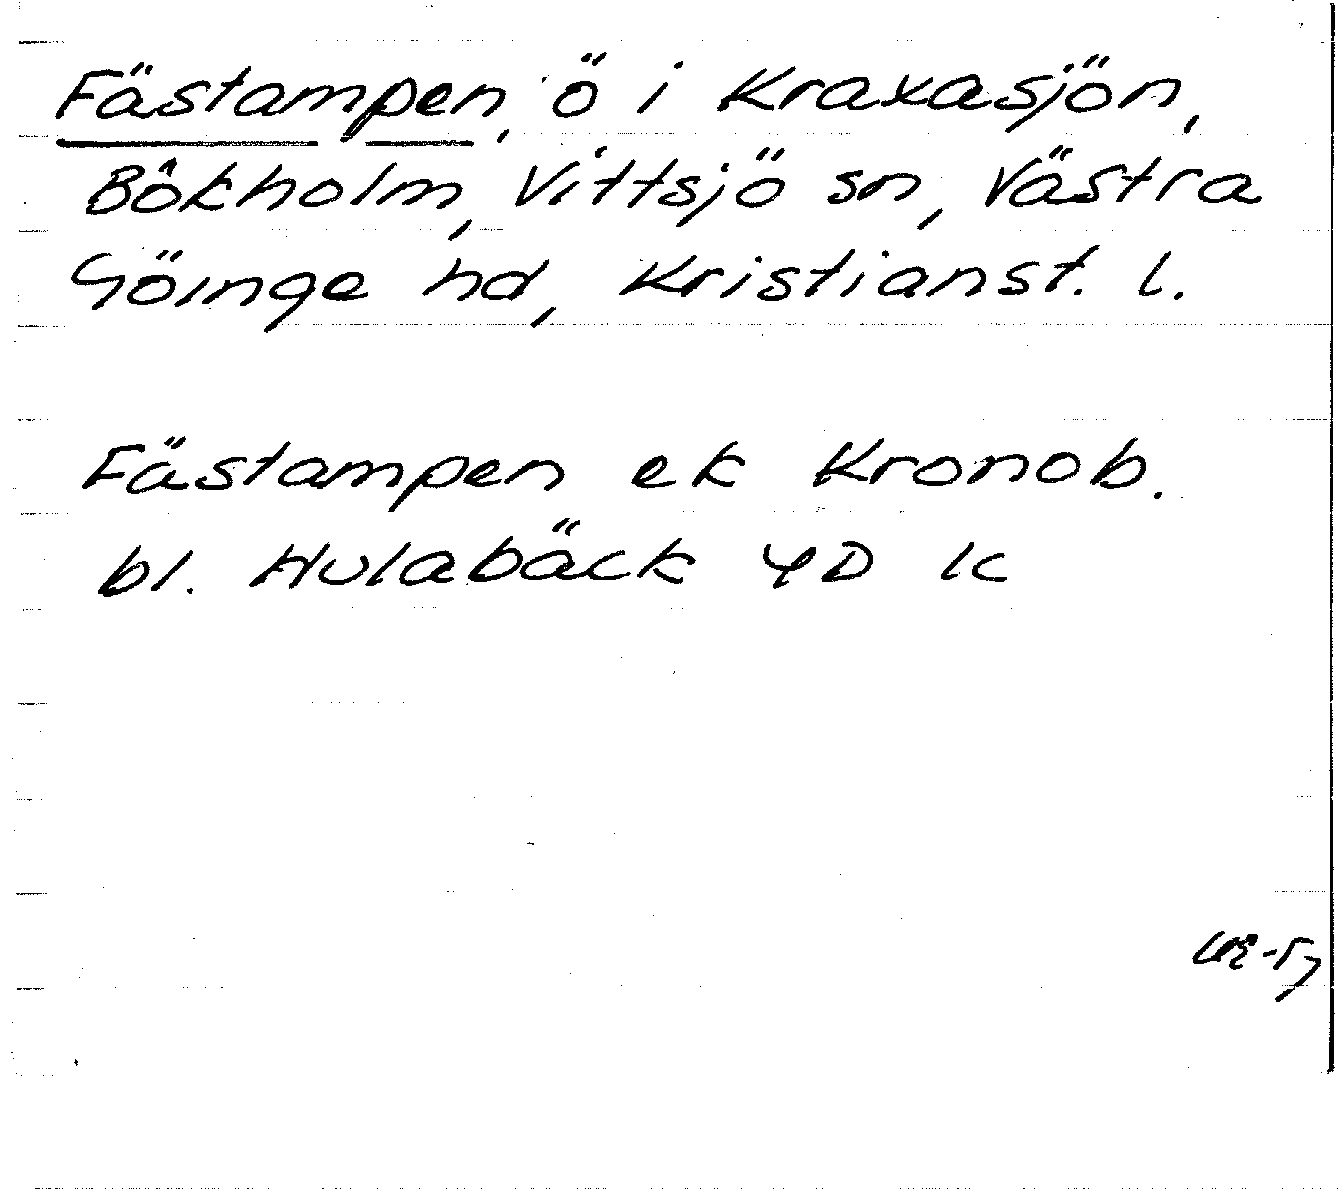 Fästampen, ö i Kraxasjön,
Bökholm, Vittsjö sn, Västra
Göinge hd, Kristianst. l.
Fästampen ek Kronob.
bl. Hulabäck 4D lc